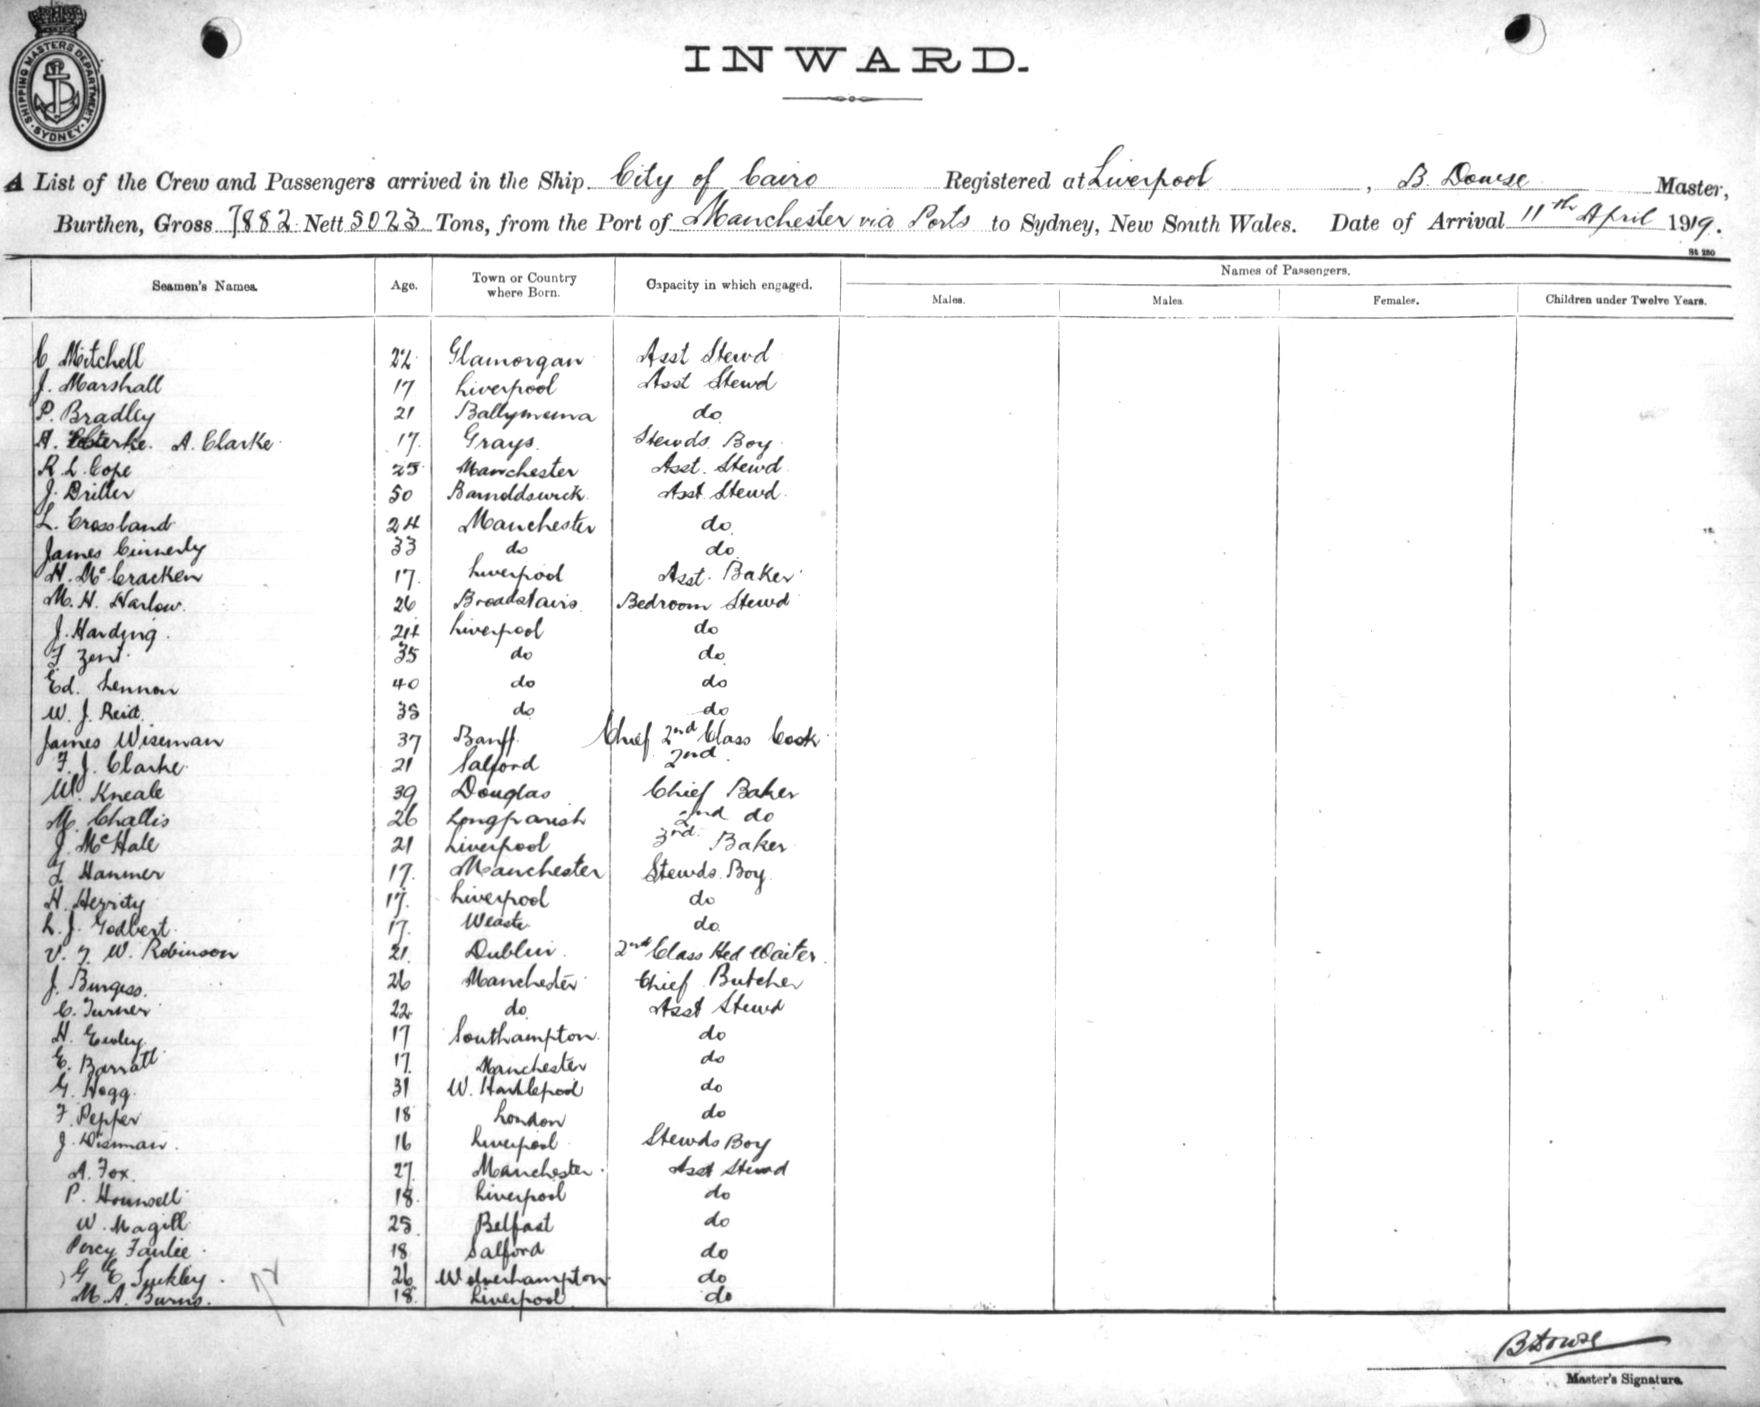 SHIPPING MASTERS DEPARTMENT · SYDNEY ·
INWARD.
A List of the Crew and Passengers arrived in the Ship City of Cairo Registered at Liverpool, B. Dowse Master,
Burthen, Gross 7882 Nett 5023 Tons, from the Port of Manchester via Ports to Sydney, New South Wales. Date of Arrival 11th April 1919.
St 280
Seamen's Names. Age. Town or Country where Born. Capacity in which engaged. Names of Passengers.
Males. Males. Females. Children under Twelve Years.
C Mitchell 22 Glamorgan Asst Stewd
J. Marshall 17 Liverpool Asst Stewd
P. Bradley 21 Ballymena do
A. A. Clarke 17. Grays. Stewds. Boy.
R. L. Cope 25 Manchester Asst. Stewd.
J. Driller 50 Barnoldswick Asst Stewd.
L. Crossland 24 Manchester do
James Cinnerly 33 do do
H. McCracken 17. Liverpool Asst. Baker
M. H. Harlow. 26 Broadstairs. Bedroom Stewd
J. Harding. 24 Liverpool do
F Zent 35 do do
Ed. Lennon 40 do do
W. J. Reid. 38 do do
James Wiseman 37 Banff Chief 2nd Class Cook
F. J. Clarke 21 Salford 2nd.
W. Kneale 39 Douglas Chief Baker
M. Challis 26 Longparish 2nd do
J. McHale 21 Liverpool 3rd Baker
F Hanmer 17. Manchester Stewds. Boy
H. Herrity 17. Liverpool do
L. J. Godbert. 17. Weaste do.
V. J. W. Robinson 21. Dublin. 2nd Class Hed Waiter.
J. Burgess. 26 Manchester Chief Butcher
C. Turner 22 do Asst Stewd
H. 17 Southampton. do
E. Barratt 17. Manchester do
G. Hogg. 31 W. Hartlepool do
F. Pepper 18 London do
J. Wisman. 16 Liverpool Stewds Boy
A. Fox. 27. Manchester. Asst Stewd
P. Hounsell 18. Liverpool do
W. Magill 25 Belfast do
Percy Fairlie. 18 Salford do
G E Suckley. 26 Wolverhampton do
M. A. Burns. 18. Liverpool do
B Dowse
Master's Signature.